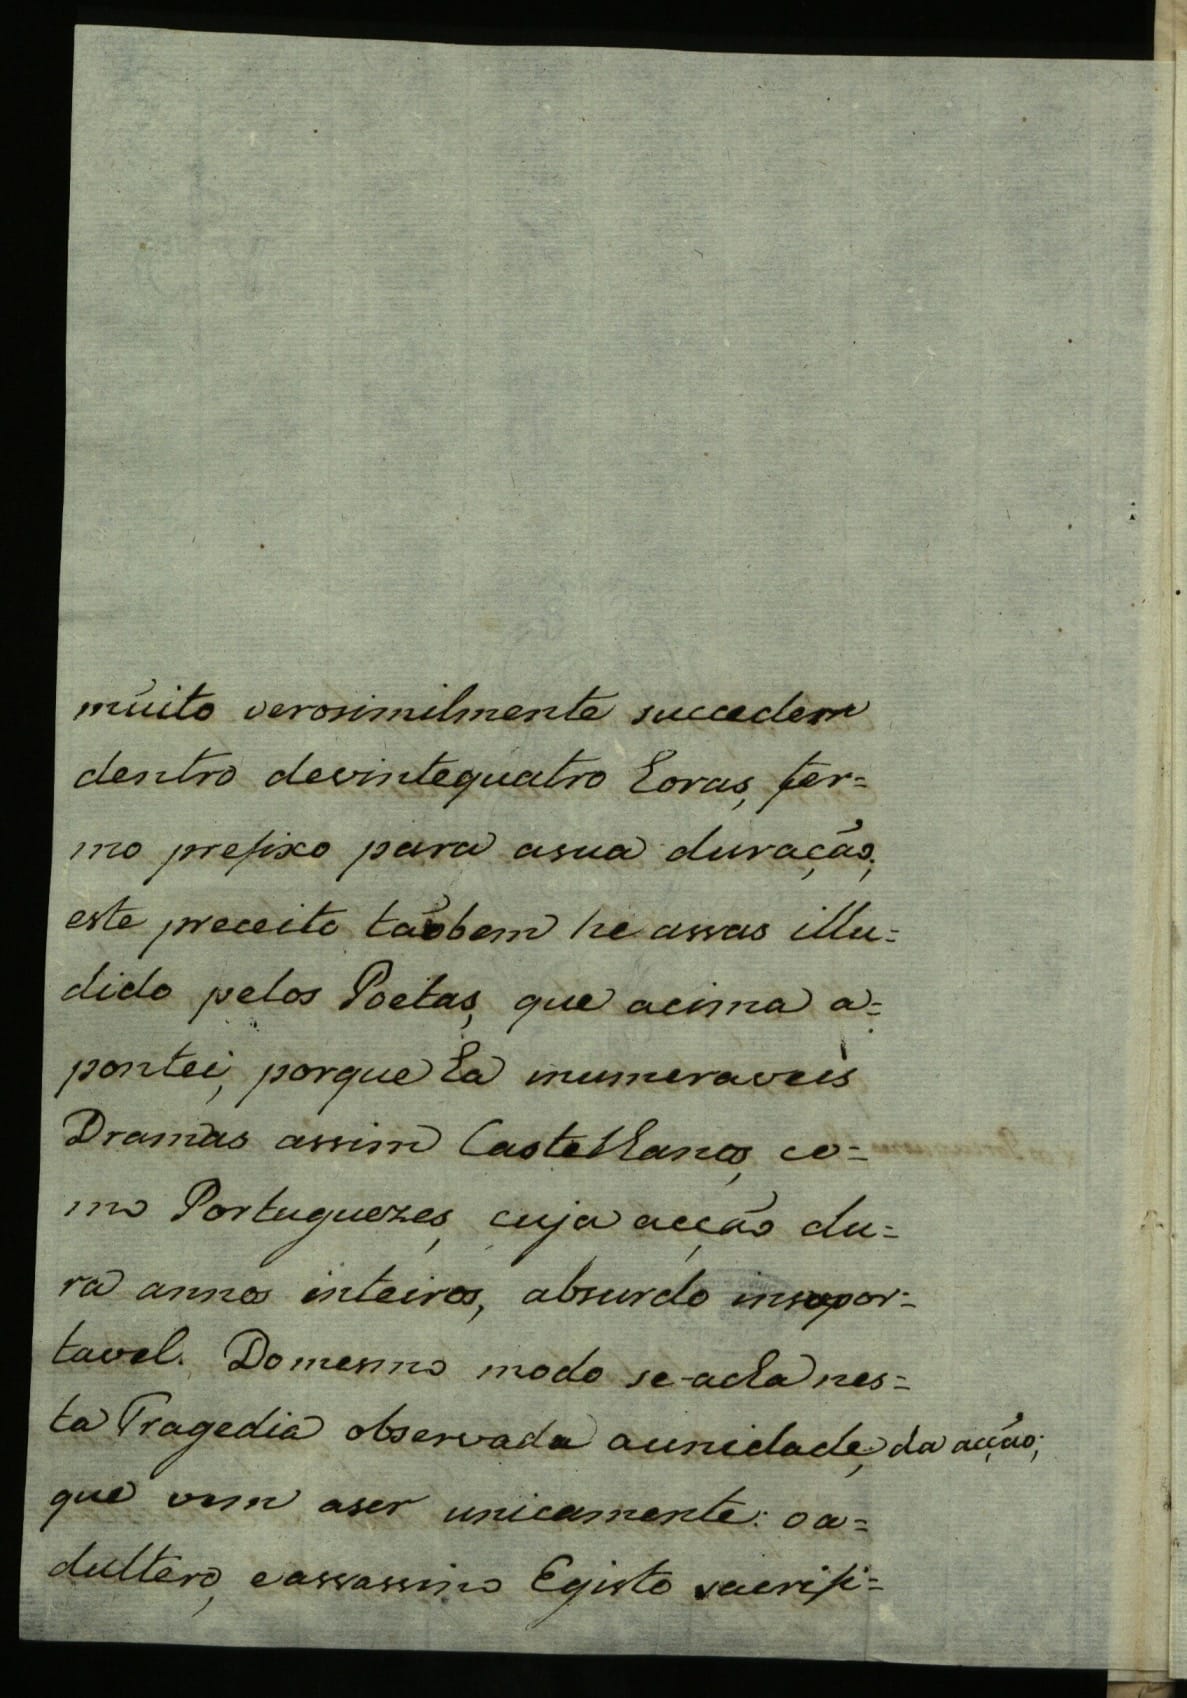 múito verosimilmente succedem
dentro devintequatro horas, ter=
mo prefixo para asua duração;
este preceito taõbem he assas illu=
dido pelos Poetas, que acima a=
pontei, porque ha innumeraveis
Dramas assim Castelhanos, co=
mo Portuguezes, cuja acção du=
ra annos inteiros, absurdo insopor=
tavel. Domesmo modo se-acha nes=
ta Tragedia observada aunidade, da acção;
que vem aser unicamente: o a=
dultero, eassassino Egisto sacrifi=